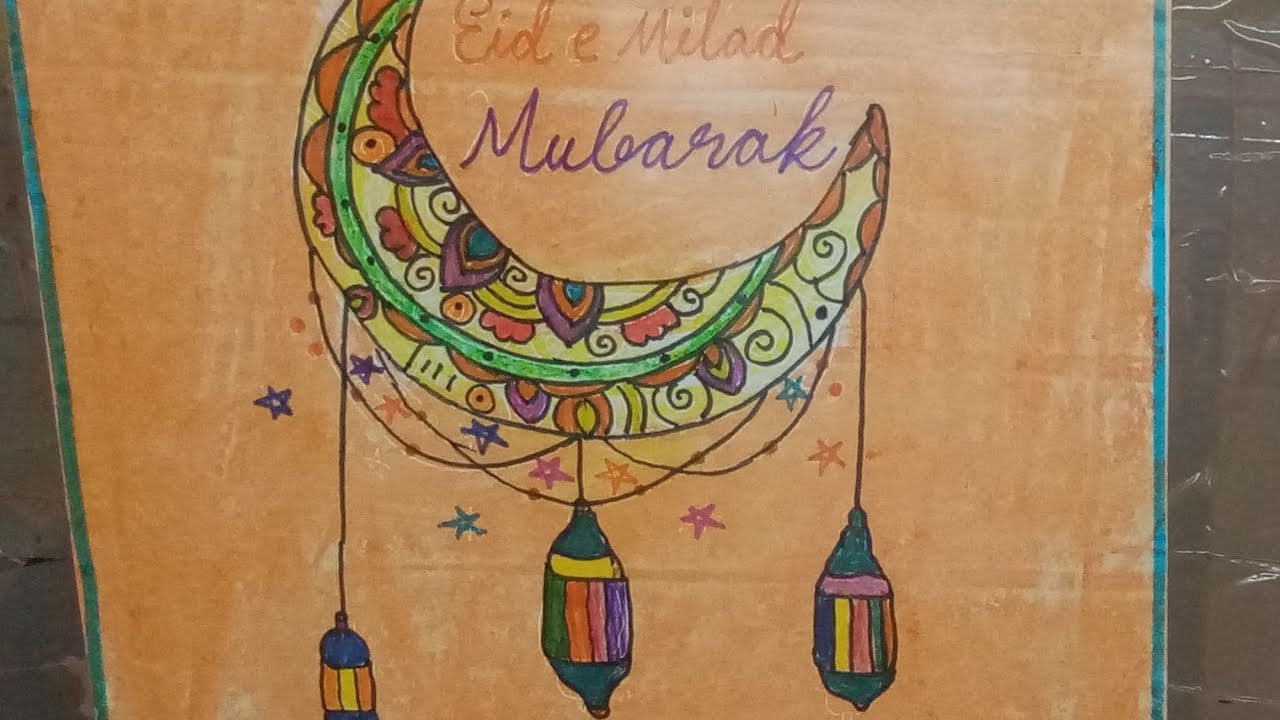 Eid e Milad
Mubarak